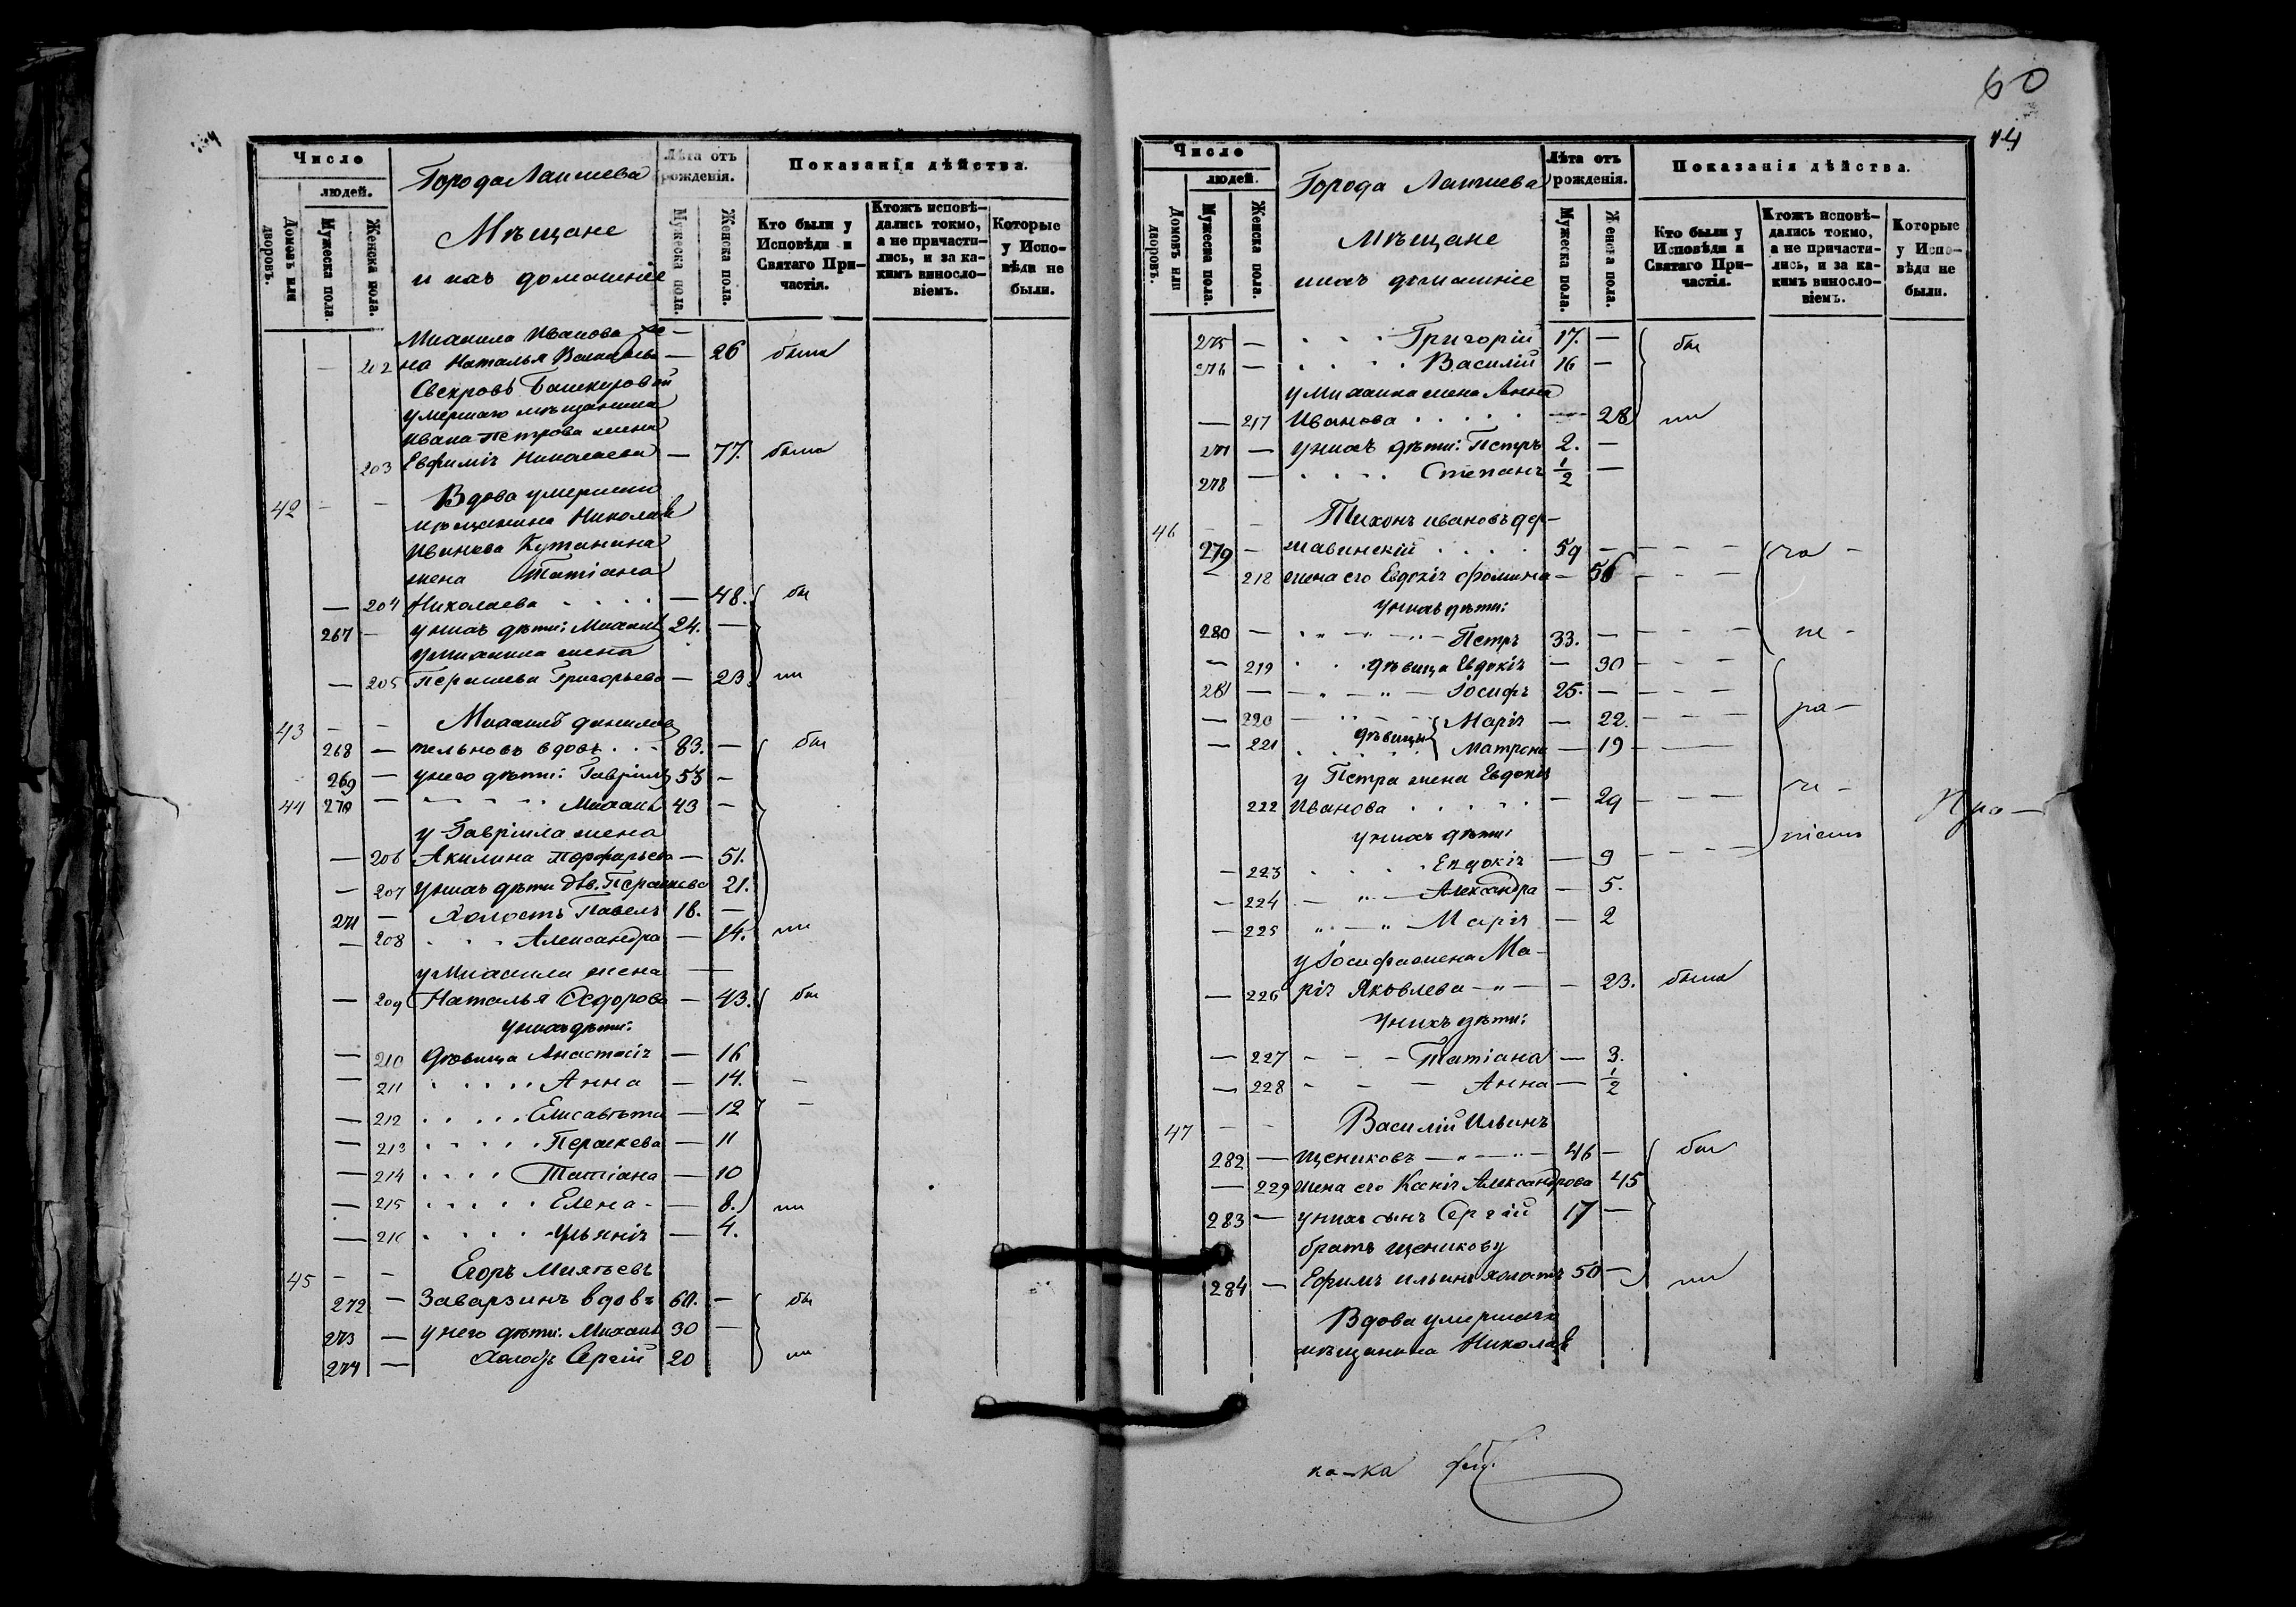 60
14
Число
людей.
Домовъ или дворовъ.
Мужеска пола.
Женска пола.
Города Лаишева
Мѣщане
и ихъ домашніе
Лѣта отъ рожденія.
Мужеска пола.
Женска пола.
Показанія дѣйства.
Кто были у Исповѣди и Святаго При-
частія.
Ктожъ исповѣ-
дались токмо,
а не причасти-
лись, и за ка-
кимъ виносло-
віемъ.
Которые
у Испо-
вѣди не
были.
Михаила Иванова же-
202 на Наталья — 26 была
Свекровь Башкуровой
умершаго мѣщанина
Ивана Петрова жена
203 Евфимія Николаева — 77. была
42 - - Вдова умершаго
мѣщанина Николая
Иванова Кутанина
жена Татіана
— 204 Николаева . . . . — 48. бы
267 — у нихъ дѣти: Михаилъ 24. —
у Михаила жена
— 205 Параскева Григорьева — 23 ли
43 - - Михаилъ Даниловъ
268 — тельновъ вдовъ . . . 83. — бы
269 — у него дѣти: Гавріилъ 53 —
44 270 — Михаилъ 43 —
у Гавріила жена
— 206 Акилина Порфирьева — 51.
— 207 у нихъ дѣти дѣв. Параскева 21.
271 — Холостъ Павелъ 18. —
— 208 . . . Александра — 14. ли
у Михаила жена —
— 209 Наталья Ѳедорова — 43. бы
у нихъ дѣти:
— 210 дѣвица Анастасія — 16
— 211 . . . . . Анна — 14. —
— 212 . . . . . Елисавета — 12 —
— 213 . . . . . Параскева — 11
— 214 . . . . Татіана — 10
— 215 . . . . . Елена - — 8. ли
— 216 . . . . . Ульянія — 4.
45 - - Егоръ
272 — Заварзинъ вдовъ 60. — бы
273 — у него дѣти: Михаилъ 30 —
274 — Холостъ Сергій 20 ли
Число
людей.
Домовъ или дворовъ.
Мужеска пола.
Женска пола.
Города Лаишева
Мѣщане
и ихъ домашніе
Лѣта отъ рожденія.
Мужеска пола.
Женска пола.
Показанія дѣйства.
Кто были у
Исповѣди и
Святаго При-
частія.
Ктожъ исповѣ-
дались токмо,
а не причасти-
лись, и за ка-
кимъ виносло-
віемъ.
Которые
у Испо-
вѣди не
были.
275 — . . . Григорій 17. — бы
276 — . . . . Василій 16 —
у Михаила жена Анна
— 217 Иванова . . . . . — 28 ли
277 — у нихъ дѣти: Петръ 2. —
278 — . . . . Степанъ 1/2 —
46 - - Тихонъ Ивановъ Дер-
279 — жавинскій . . . . 59 — — — — ра -
— 218 жена его Евдокія Фомина — 56 — — —
у нихъ дѣти:
280 — Петръ 33. — — — —
— 219 . . . дѣвица Евдокія — 30 — — —
281 — Іосифъ 25. — — — —
— 220 Марія — 22. — — — ра —
— 221 дѣвицы Матрона — 19 — —
у Петра жена Евдокія
222 Иванова . . . . . — 29 — — —
у нихъ дѣти:
— 223 . . . . Евдокія — 9 — — —
— 224 Александра — 5.
— 225 Марія — 2
у Іосифа жена Ма-
— 226 рія Яковлева — 23. была
у нихъ дѣти:
— 227 - - - Татіана — 3.
— 228 - - - Анна — 1/2
47 - - Василій Ильинъ
282 — Щениковъ 46 — бы
— 229 жена его Ксенія Александрова 45
283 — у нихъ сынъ Сергій 17 —
братъ Щеникову
284 — Ефимъ Ильинъ холостъ 50 — ли
Вдова умершаго
мѣщанина Николая